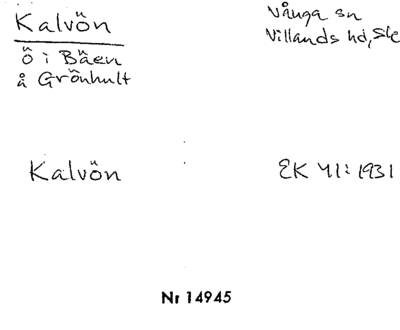 Kalvön
Vånga sn
Villands hd, Skå
ö i Bäen
å Grönhult
Kalvön
EK 41:1931
Nr 14945